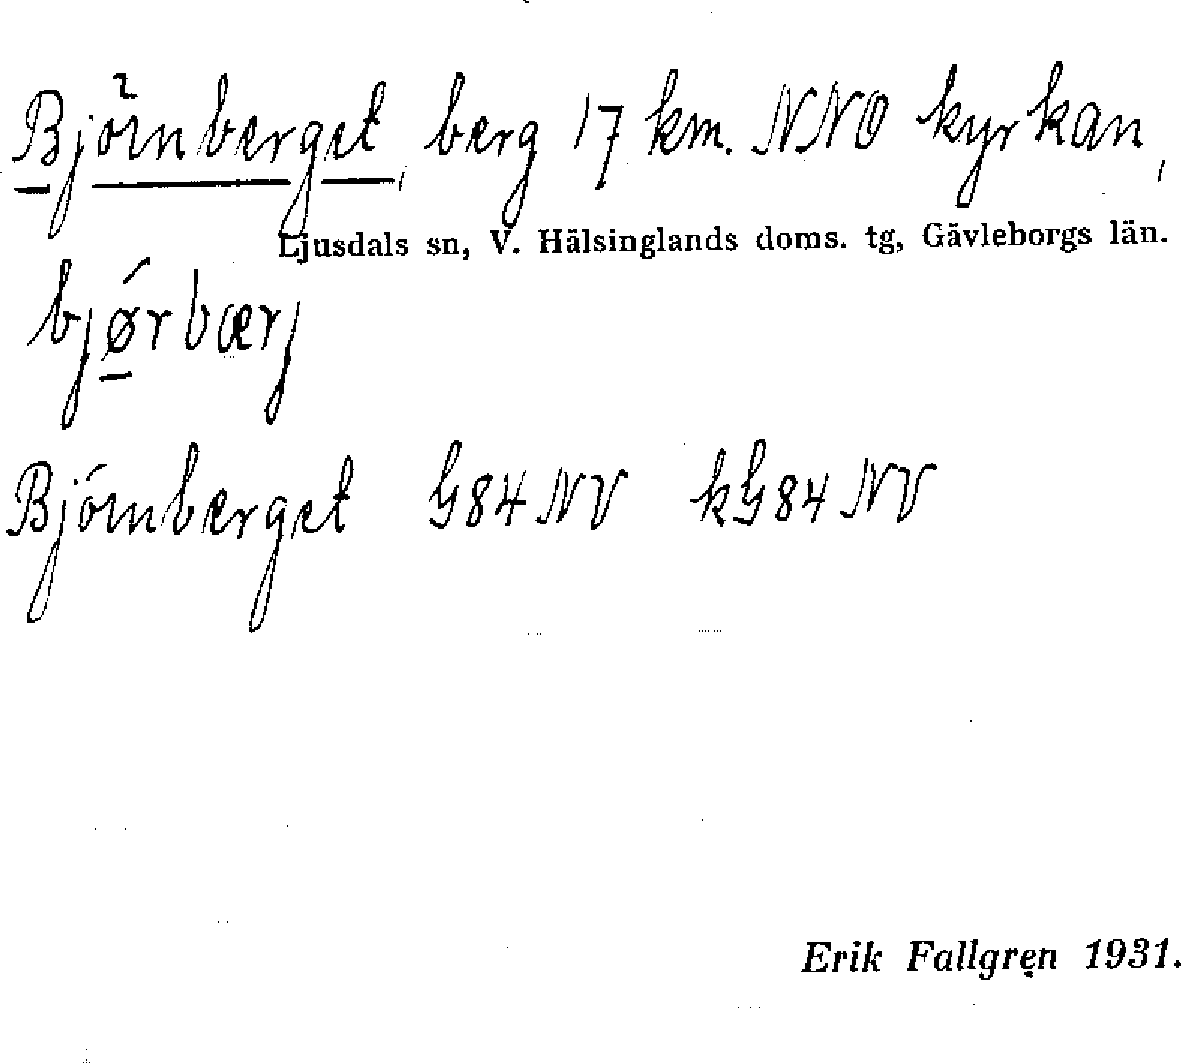 Björnberget, berg 17 km. NNO kyrkan,
Ljusdals sn, V. Hälsinglands doms. tg, Gävleborgs län.
bjǿrbærj
Björnberget G84NV kG84NV
Erik Fallgren 1931.